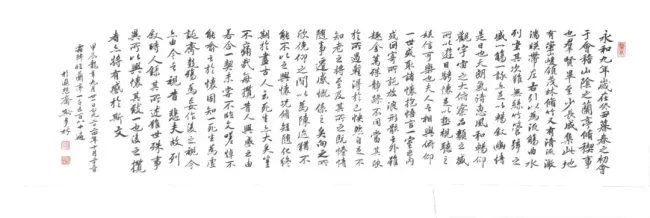 永和九年歲在癸丑暮春之初會
于會稽山陰之蘭亭脩稧事
也羣賢畢至少長咸集此地
有崇山峻領茂林脩竹又有清流激
湍暎帶左右引以為流觴曲水
列坐其次雖無絲竹管弦之
盛一觴一詠亦足以暢叙幽情
是日也天朗氣清惠風和暢仰
觀宇宙之大俯察品類之盛
所以遊目騁懷足以極視聽之
娛信可樂也夫人之相與俯仰
一世或取諸懷抱悟言一室之內
或因寄所託放浪形骸之外雖
趣舍萬殊靜躁不同當其欣
於所遇暫得於己怏然自足不
知老之將至及其所之既惓情
隨事遷感慨係之矣向之所
欣俛仰之間以為陳迹猶不
能不以之興懷況脩短隨化終
期於盡古人云死生亦大矣豈
不痛哉每攬昔人興感之由
若合一契未嘗不臨文嗟悼不
能喻之於懷固知一死生為虛
誕齊彭殤為妄作後之視今
亦由今之視昔悲夫故列
叙時人錄其所述雖世殊事
異所以興懷其致一也後之攬
者亦將有感於斯文
甲辰龍年九月廿日